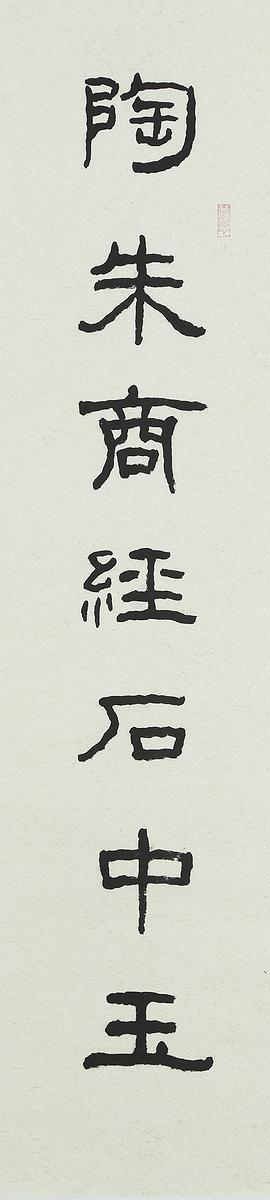 陶朱商經石中玉